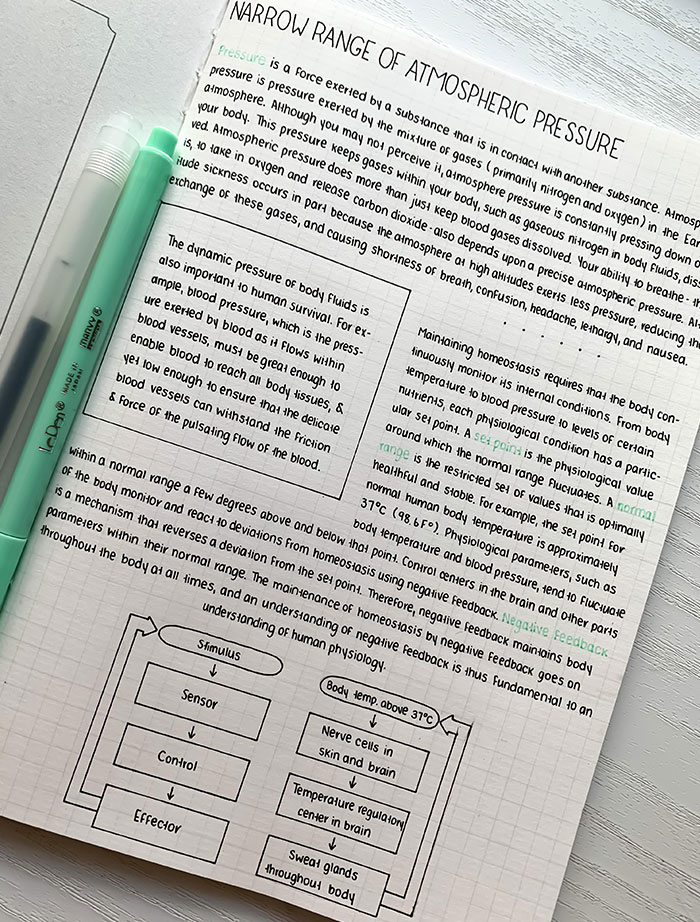 NARROW RANGE OF ATMOSPHERIC PRESSURE
Pressure is a force exerted by a substance that is in contact with another substance. Atmosp
pressure is pressure exerted by the mixture of gases (primarily nitrogen and oxygen) in the Ear
atmosphere. Although you may not perceive it, atmosphere pressure is constantly pressing down o
your body. This pressure keeps gases within your body, such as gaseous nitrogen in body fluids, diss
ved. Atmospheric pressure does more than just keep blood gases dissolved. Your ability to breathe - th
is, to take in oxygen and release carbon dioxide - also depends upon a precise atmospheric pressure. Al
itude sickness occurs in part because the atmosphere at high altitudes exerts less pressure, reducing th
exchange of these gases, and causing shortness of breath, confusion, headache, lethargy, and nausea.
The dynamic pressure of body fluids is
also important to human survival. For ex-
ample, blood pressure, which is the press-
ure exerted by blood as it flows within
blood vessels, must be great enough to
enable blood to reach all body tissues, &
yet low enough to ensure that the delicate
blood vessels can withstand the friction
& force of the pulsating flow of the blood.
Maintaining homeostasis requires that the body con-
tinuously monitor its internal conditions. From body
temperature to blood pressure to levels of certain
nutrients, each physiological condition has a partic-
ular set point. A set point is the physiological value
around which the normal range fluctuates. A normal
range is the restricted set of values that is optimally
healthful and stable. For example, the set point for
normal human body temperature is approximately
37°C (98.6F°). Physiological parameters, such as
body temperature and blood pressure, tend to fluctuate
within a normal range a few degrees above and below that point. Control centers in the brain and other parts
of the body monitor and react to deviations from homeostasis using negative feedback. Negative Feedback
is a mechanism that reverses a deviation from the set point. Therefore, negative feedback maintains body
parameters within their normal range. The maintenance of homeostasis by negative feedback goes on
throughout the body at all times, and an understanding of negative feedback is thus fundamental to an
understanding of human physiology.
Stimulus
Sensor
Control
Effector
Body temp. above 37°C
Nerve cells in
skin and brain
Temperature regulatory
center in brain
Sweat glands
throughout body
LePen®
MADE IN
JAPAN
MARVY®